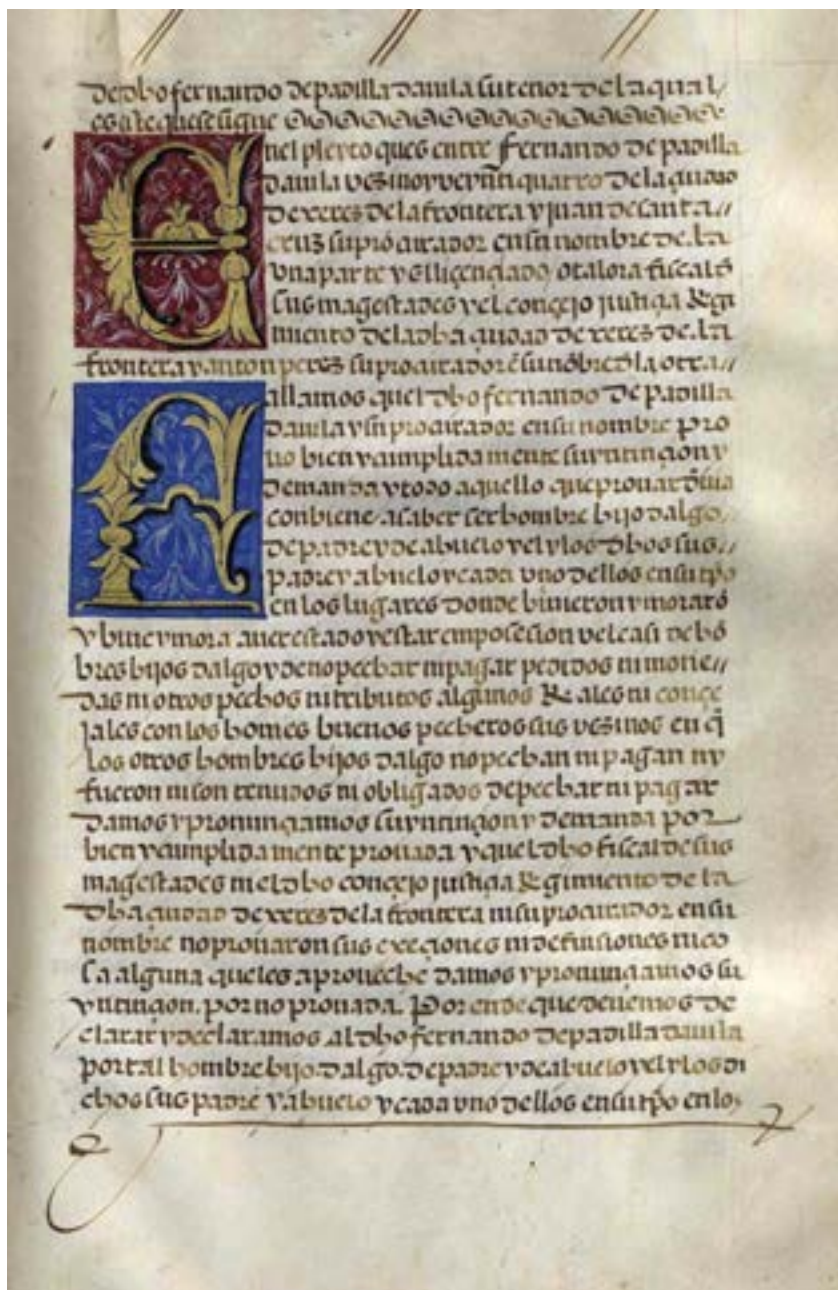 de dho fernando de padilla davila su tenor de la qual
es este que se sigue
Enel pleyto ques entre fernando de padilla
davila vezino y veynti quatro de la çiudad
de xeres de la frontera y juan de santa //
cruz su procurador en su nombre de la
una parte y el liçençiado otalora fiscal d
sus magestades y el conçejo justiçia Regi
miento de la dha çiudad de xeres de la
frontera y anton peres su procurador ē su nōbre d la otra //
Fallamos quel dho fernando de padilla
davila y su procurador en su nombre pro
uo bien y cumplida mente su yntinçion y
demanda y todo aquello que prouar
conbiene a saber ser hombre hijo dalgo
de padre y de abuelo y el y los dhos sus //
padre y abuelo y cada uno dellos en su tpo
en los lugares donde biuieron y morarō
y biue y mora auer estado y estar em posesion vel casi de hō
bres hijos dalgo y de no pechar ni pagar pedidos ni mone //
das ni otros pechos ni tributos algunos Reales ni conçe
jales con los homes buenos pecheros sus vezinos en q̄
los otros hombres hijos dalgo no pechan ni pagan ny
fueron ni son tenudos ni obligados de pechar ni pagar
damos y pronunçiamos su yntinçion y demanda por
bien y cumplida mente prouada y quel dho fiscal de sus
magestades ni el dho conçejo justiçia Regimiento de la
dha çiudad de xeres de la frontera ni su procurador en su
nombre no prouaron sus exeçiones ni defensiones ni co
sa alguna que les aproueche damos y pronunçiamos su
yntinçion. por no prouada. Por ende que deuemos de
clarar y declaramos al dho fernando de padilla davila
por tal hombre hijo dalgo de padre y de abuelo y el y los di
chos sus padre y abuelo y cada uno dellos en su tpo en los